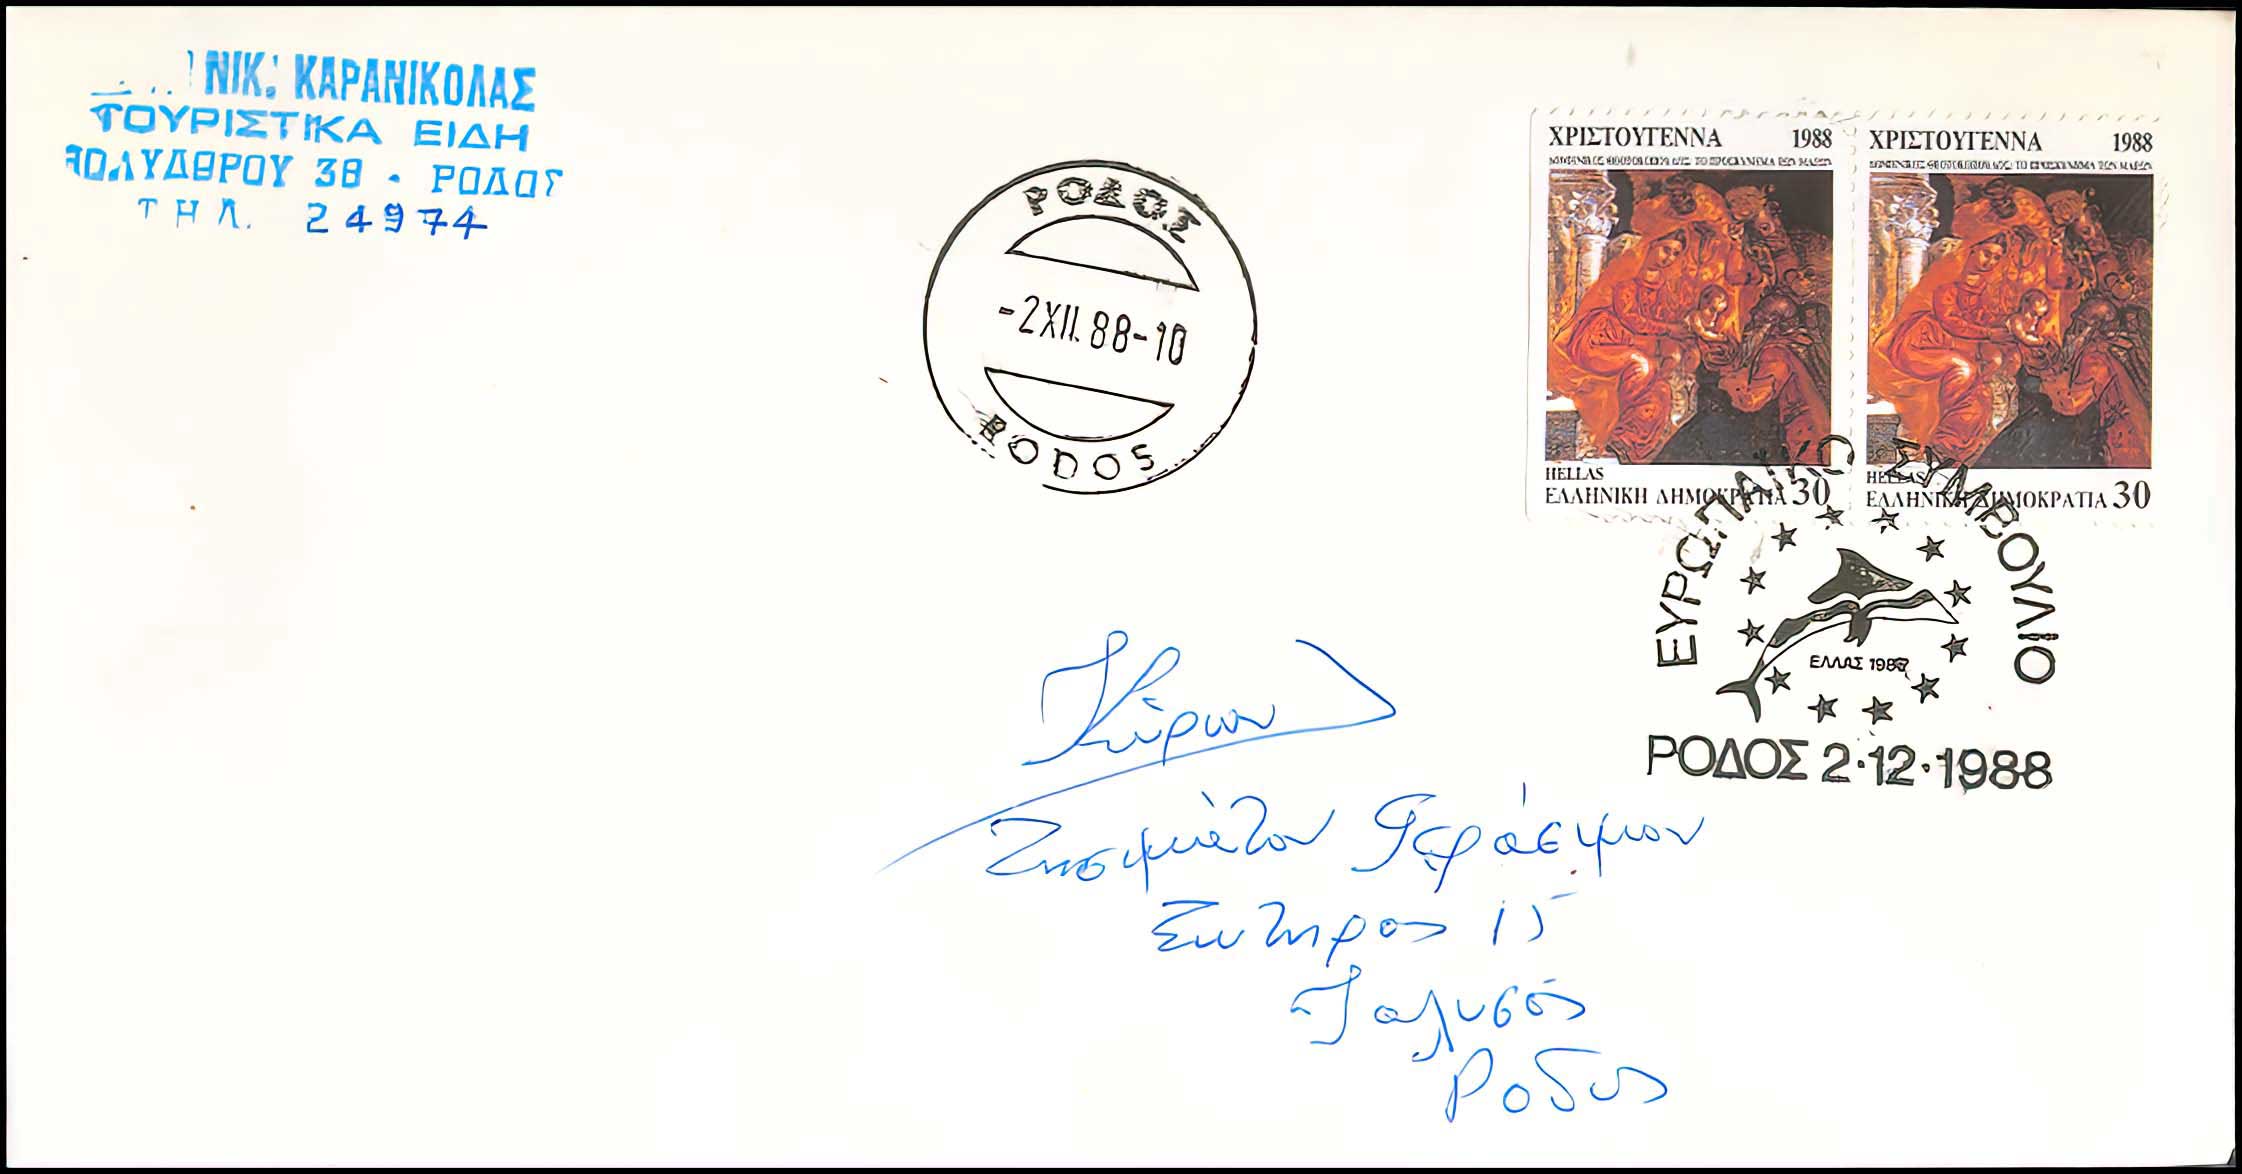 ΝΙΚ. ΚΑΡΑΝΙΚΟΛΑΣ
ΤΟΥΡΙΣΤΙΚΑ ΕΙΔΗ
ΠΟΛΥΔΩΡΟΥ 38 - ΡΟΔΟΣ
ΤΗΛ. 24974
ΡΟΔΟΣ
-2XII.88-10
RODOS
ΧΡΙΣΤΟΥΓΕΝΝΑ 1988
HELLAS
ΕΛΛΗΝΙΚΗ ΔΗΜΟΚΡΑΤΙΑ 30
ΧΡΙΣΤΟΥΓΕΝΝΑ 1988
HELLAS
ΕΛΛΗΝΙΚΗ ΔΗΜΟΚΡΑΤΙΑ 30
ΕΥΡΩΠΑΪΚΟ ΣΥΜΒΟΥΛΙΟ
ΕΛΛΑΣ 1988
ΡΟΔΟΣ 2·12·1988
Κύριον
Γεράσιμον
Σωτηρος 15
Ιαλυσός
Ρόδος